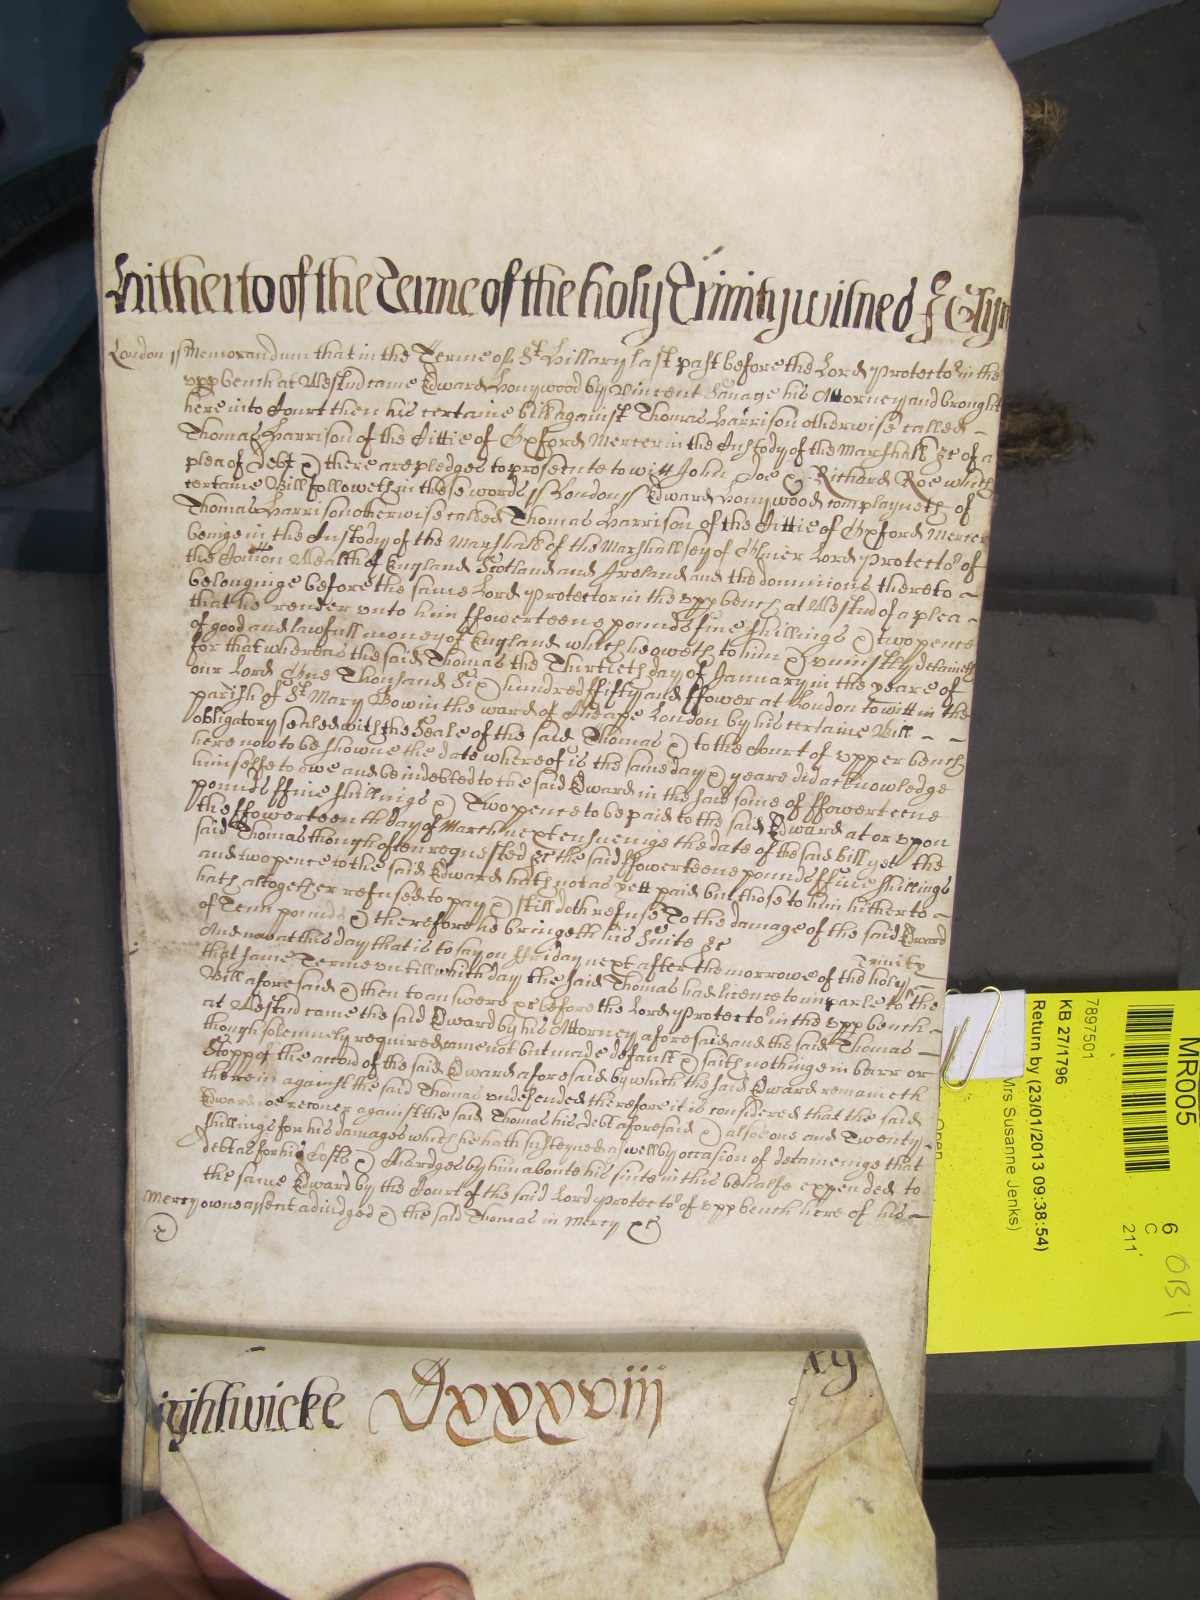 Hitherto of the Terme of the holy Trinity witned J Glyn
London ss Memorandum that in the Terme of St Hillary last past before the Lord Protector in the
upp bench at Westmr came Edward Honywood by Vincent Savage his Attorney and brought
here into Court then his certaine bill against Thomas Harrison otherwise called
Thomas Harrison of the Cittie of Oxford Mercer in the Custody of the Marshall &c of a
plea of Debt & there are pledges to prosecute to witt John Doe & Richard Roe which
certaine Bill followeth in these words ss London ss Edward Honywood complayneth of
Thomas Harrison otherwise called Thomas Harrison of the Cittie of Oxford Mercer
beinge in the Custody of the Marshall of the Marshallsey of Oliver Lord Protector of
the Comon Wealth of England Scotland and Ireland and the dominions thereto
belonginge before the same Lord Protector in the upp bench at Westmr of a plea
that he render unto him ffowerteene pounds five shillings & two pence
of good and lawfull money of England which he oweth to him & uniustly detaineth
for that whereas the said Thomas the Thirtieth day of January in the yeare of
our Lord One Thousand Six hundred ffifty and ffower at London to witt in the
parish of St Mary Bow in the ward of Cheape London by his certaine Bill
obligatory sealed with the Seale of the said Thomas & to the Court of upper bench
here now to be showne the date whereof is the same day & yeare did acknowledge
himselfe to owe and be indebted to the said Edward in the said some of ffowerteene
pounds ffive shillings & Two pence to be paid to the said Edward at or upon
the ffowerteenth day of March next ensueinge the date of the said bill yet the
said Thomas though often requested &c the said ffowerteene pounds ffive shillings
and two pence to the said Edward hath not as yett paid but those to him hitherto
hath altogether refused to pay & still doth refuse To the damage of the said Edward
of Tenn pounds & therefore he bringeth his Suite &c
And now at this day that is to say on ffriday next after the morrowe of the holy Trinity
that same Terme untill which day the said Thomas had licence to imparle to the
Bill aforesaid & then to answere &c before the Lord Protector in the upp bench
at Westmr came the said Edward by his Attorney aforesaid and the said Thomas
though solemnely required came not but made default & saith nothinge in barr or
Stopp of the accion of the said Edward aforesaid by which the said Edward remaineth
therein against the said Thomas undefended therefore it is considered that the said
Edward doe recover against the said Thomas his debt aforesaid & alsoe one and Twenty
shillings for his damages which he hath susteyned as well by occasion of detaineinge that
debt as for his Costs & Chardges by him aboute his suite in this behalfe expended to
the same Edward by the Court of the said Lord Protector of upp bench here of his
Mercy owne assent adiudged & the said Thomas in Mercy &c
ightwicke xxxviij
MR005
7897501
KB 27/1796
Return by (23/01/2013 09:38:54)
Mrs Susanne Jenks)
6
C
211
OB1